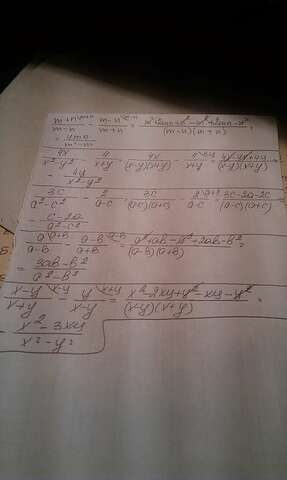 m+n/m-n - m-n/m+n = m²+2mn+n²-m²+2mn-n²/(m-n)(m+n) =
= 4mn/m²-n²
4x/x²-y² - 4/x+y = 4x/(x-y)(x+y) - 4/x+y = 4x-4x+4y/(x-y)(x+y)
- 4y/x²-y²
3c/a²-c² - 2/a-c = 3c/(a-c)(a+c) - 2/a-c = 3c-2a-2c/(a-c)(a+c)
c-2a/a²-c²
a/a-b a-b/a+b = a²+ab-a²+2ab-b²/(a-b)(a+b) =
= 3ab-b²/a²-b²
x-y/x+y - y/x-y = x²-2xy+y²-xy-y²/(x-y)(x+y) =
x²-3xy/x²-y²